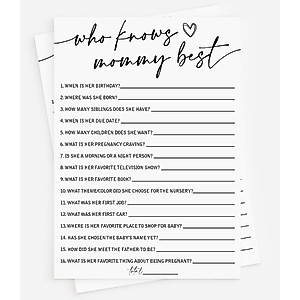 who knows
mommy best
1. WHEN IS HER BIRTHDAY?
2. WHERE WAS SHE BORN?
3. HOW MANY SIBLINGS DOES SHE HAVE?
4. WHEN IS HER DUE DATE?
5. HOW MANY CHILDREN DOES SHE WANT?
6. WHAT IS HER PREGNANCY CRAVING?
7. IS SHE A MORNING OR A NIGHT PERSON?
8. WHAT IS HER FAVORITE TELEVISION SHOW?
9. WHAT IS HER FAVORITE BOOK?
10. WHAT THEME/COLOR DID SHE CHOOSE FOR THE NURSERY?
11. WHAT WAS HER FIRST JOB?
12. WHAT WAS HER FIRST CAR?
13. WHERE IS HER FAVORITE PLACE TO SHOP FOR BABY?
14. HAS SHE CHOSEN THE BABY'S NAME YET?
15. HOW DID SHE MEET THE FATHER TO BE?
16. WHAT IS HER FAVORITE THING ABOUT BEING PREGNANT?
total